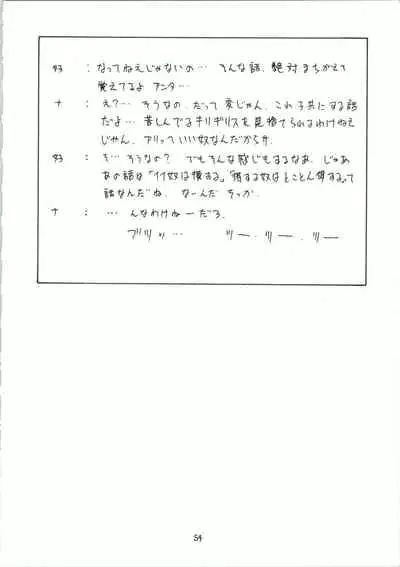 好 : なってねえじゃないの… そんな話、絶対まちがえて
覚えてるよ アンタ…
ナ : え?… そうなの、だって変じゃん、これ子共にする話
だよ… 苦しんでるキリギリスを見捨てられるわけねえ
じゃん、アリっていい奴なんだからサ
好 : そ… そうなの? でもそんな感じもするなあ、じゃあ
あの話は「イイ奴は損する」「損する奴はとことん損する」って
話なんだね、なーんだ そっか、
ナ : … んなわけねーだろ、
プツッ… ツー・ツー・ツー
54